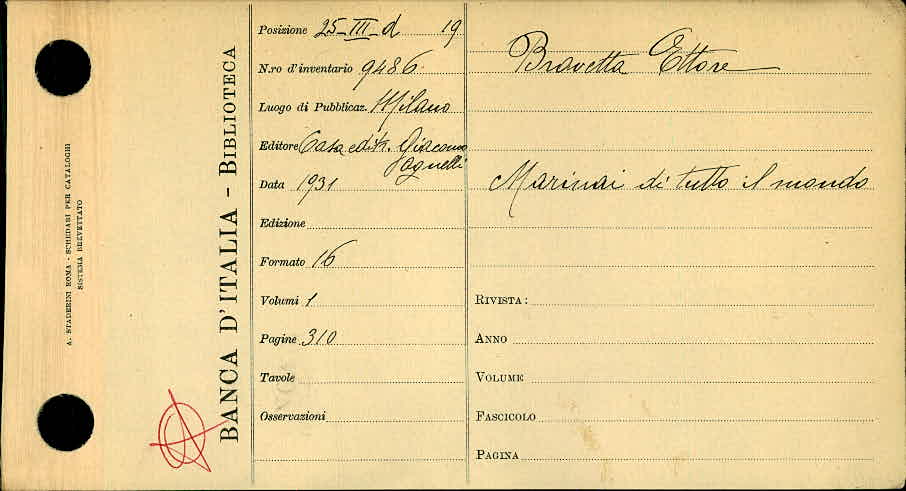 A. STADERINI ROMA - SCHEDARI PER CATALOGHI
SISTEMA BREVETTATO
BANCA D'ITALIA - BIBLIOTECA
Posizione 25-III-d 19
N.ro d'inventario 9486
Luogo di Pubblicaz. Milano
Editore Casa edit. Giacomo
Agnelli
Data 1931
Edizione
Formato 16
Volumi 1
Pagine 310
Tavole
Osservazioni
Bravetta Ettore
Marinai di tutto il mondo
RIVISTA:
ANNO
VOLUME
FASCICOLO
PAGINA